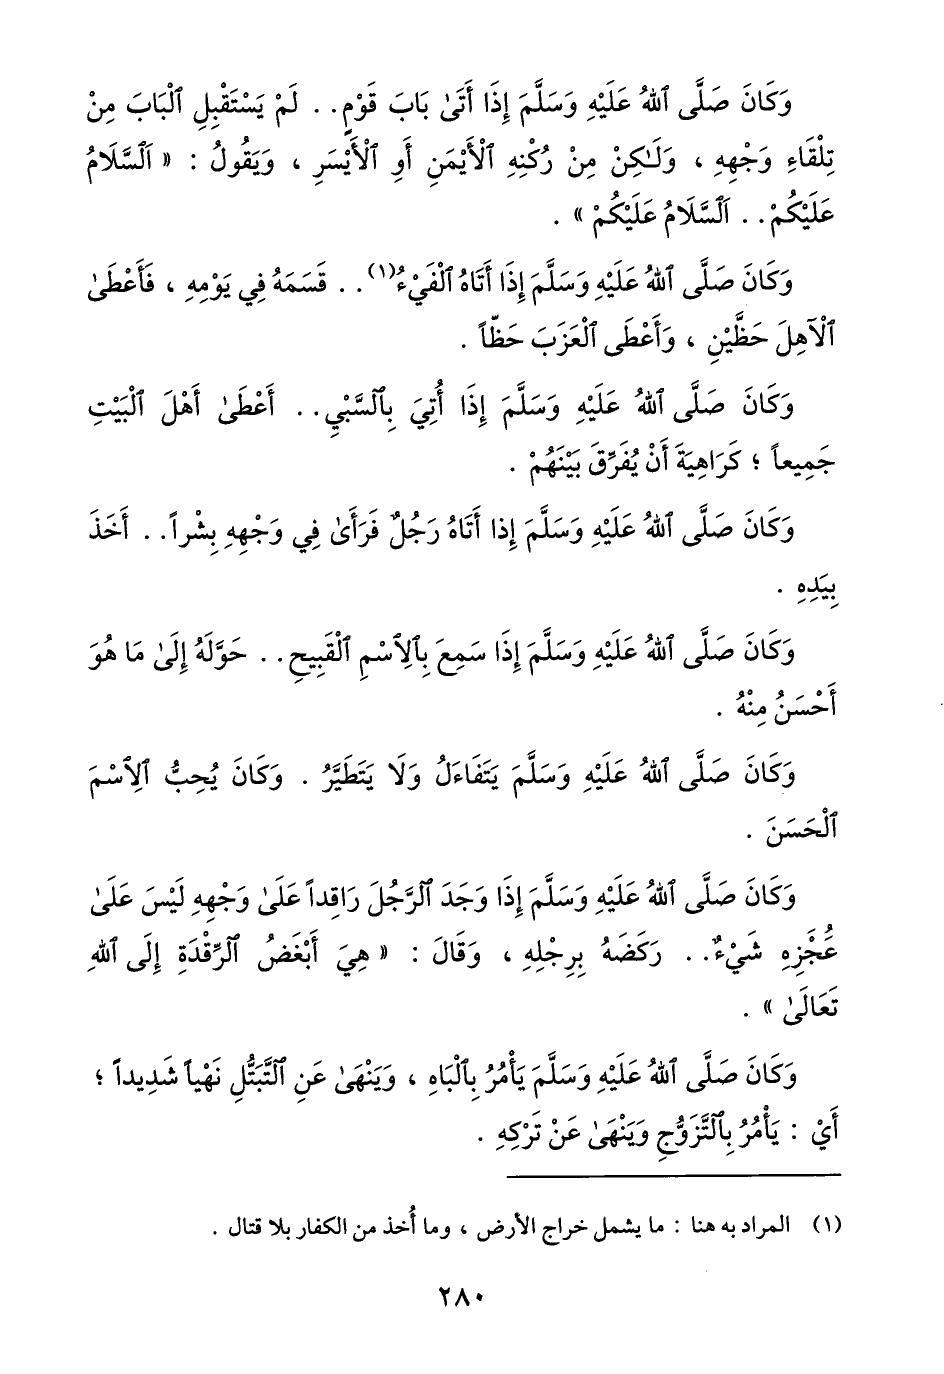 وَكَانَ صَلَّى ٱللهُ عَلَيْهِ وَسَلَّمَ إِذَا أَتَىٰ بَابَ قَوْمٍ.. لَمْ يَسْتَقْبِلِ ٱلْبَابَ مِنْ
تِلْقَاءِ وَجْهِهِ ، وَلَـٰكِنْ مِنْ رُكْنِهِ ٱلْأَيْمَنِ أَوِ ٱلْأَيْسَرِ ، وَيَقُولُ : « ٱلسَّلَامُ
عَلَيْكُمْ.. ٱلسَّلَامُ عَلَيْكُمْ » .
وَكَانَ صَلَّى ٱللهُ عَلَيْهِ وَسَلَّمَ إِذَا أَتَاهُ ٱلْفَيْءُ(١).. قَسَمَهُ فِي يَوْمِهِ ، فَأَعْطَىٰ
ٱلْآهِلَ حَظَّيْنِ ، وَأَعْطَى ٱلْعَزَبَ حَظّاً .
وَكَانَ صَلَّى ٱللهُ عَلَيْهِ وَسَلَّمَ إِذَا أُتِيَ بِٱلسَّبْيِ.. أَعْطَىٰ أَهْلَ ٱلْبَيْتِ
جَمِيعاً ؛ كَرَاهِيَةَ أَنْ يُفَرِّقَ بَيْنَهُمْ .
وَكَانَ صَلَّى ٱللهُ عَلَيْهِ وَسَلَّمَ إِذا أَتَاهُ رَجُلٌ فَرَأَىٰ فِي وَجْهِهِ بِشْراً.. أَخَذَ
بِيَدِهِ .
وَكَانَ صَلَّى ٱللهُ عَلَيْهِ وَسَلَّمَ إِذَا سَمِعَ بِٱلِٱسْمِ ٱلْقَبِيحِ.. حَوَّلَهُ إِلَىٰ مَا هُوَ
أَحْسَنُ مِنْهُ .
وَكَانَ صَلَّى ٱللهُ عَلَيْهِ وَسَلَّمَ يَتَفَاءَلُ وَلَا يَتَطَيَّرُ . وَكَانَ يُحِبُّ ٱلِٱسْمَ
ٱلْحَسَنَ .
وَكَانَ صَلَّى ٱللهُ عَلَيْهِ وَسَلَّمَ إِذَا وَجَدَ ٱلرَّجُلَ رَاقِداً عَلَىٰ وَجْهِهِ لَيْسَ عَلَىٰ
عَجُزِهِ شَيْءٌ.. رَكَضَهُ بِرِجْلِهِ ، وَقَالَ : « هِيَ أَبْغَضُ ٱلرِّقْدَةِ إِلَى ٱللهِ
تَعَالَىٰ » .
وَكَانَ صَلَّى ٱللهُ عَلَيْهِ وَسَلَّمَ يَأْمُرُ بِٱلْبَاهِ ، وَيَنْهَىٰ عَنِ ٱلتَّبَتُّلِ نَهْياً شَدِيداً ؛
أَيْ : يَأْمُرُ بِٱلتَّزَوُّجِ وَيَنْهَىٰ عَنْ تَرْكِهِ .
(١) المراد به هنا : ما يشمل خراج الأرض ، وما أُخذ من الكفار بلا قتال .
٢٨٠